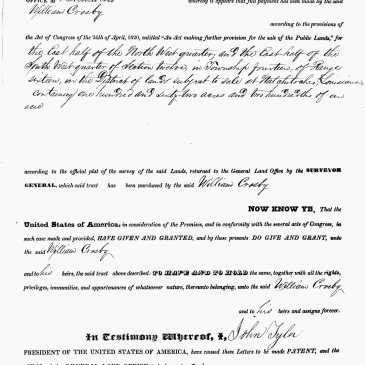 whereby it appears that full payment has been made by the said
William Crosby
according to the provisions of
the Act of Congress of the 24th of April, 1820, entitled "An Act making further provision for the sale of the Public Lands," for
the East half of the North West quarter, and the East half of the
South West quarter of Section twelve, in Township fourteen, of Range
sixteen, in the District of Lands subject to sale at Natchitoches, Louisiana,
containing one hundred and sixty two acres and two hundredths of an
acre
according to the official plat of the survey of the said Lands, returned to the General Land Office by the SURVEYOR
GENERAL, which said tract has been purchased by the said William Crosby
NOW KNOW YE, That the
United States of America, in consideration of the Premises, and in conformity with the several acts of Congress, in
such case made and provided, HAVE GIVEN AND GRANTED, and by these presents DO GIVE AND GRANT, unto
the said William Crosby
and to his heirs, the said tract above described: TO HAVE AND TO HOLD the same, together with all the rights,
privileges, immunities, and appurtenances of whatsoever nature, thereunto belonging, unto the said William Crosby
and to his heirs and assigns forever.
In Testimony Whereof, I, John Tyler
PRESIDENT OF THE UNITED STATES OF AMERICA, have caused these Letters to be made PATENT, and the